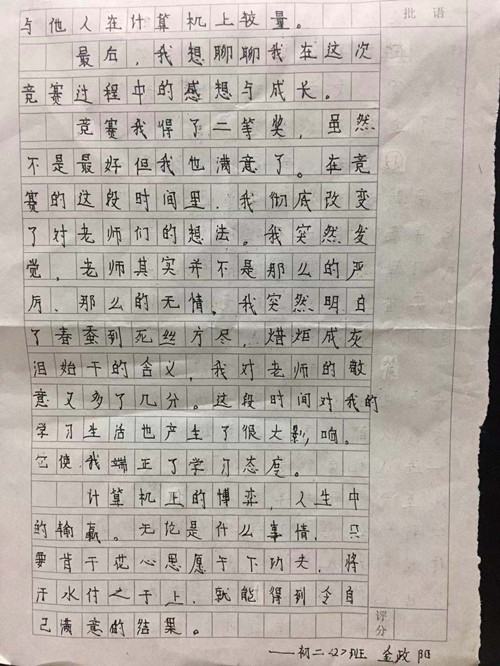 批语
与他人在计算机上较量。
最后，我想聊聊我在这次
竞赛过程中的感想与成长。
竞赛我得了二等奖，虽然
不是最好但我也满意了。在竞
赛的这段时间里，我彻底改变
了对老师们的想法。我突然发
觉，老师其实并不是那么的严
厉、那么的无情。我突然明白
了春蚕到死丝方尽，蜡炬成灰
泪始干的含义，我对老师的敬
意又多了几分。这段时间对我的
学习生活也产生了很大影响。
它使我端正了学习态度。
计算机上的博弈，人生中
的输赢。无论是什么事情，只
要肯干花心思愿下功夫，将
汗水付之于上，就能得到令自
己满意的结果。
评分
——初二（2）班 金政阳